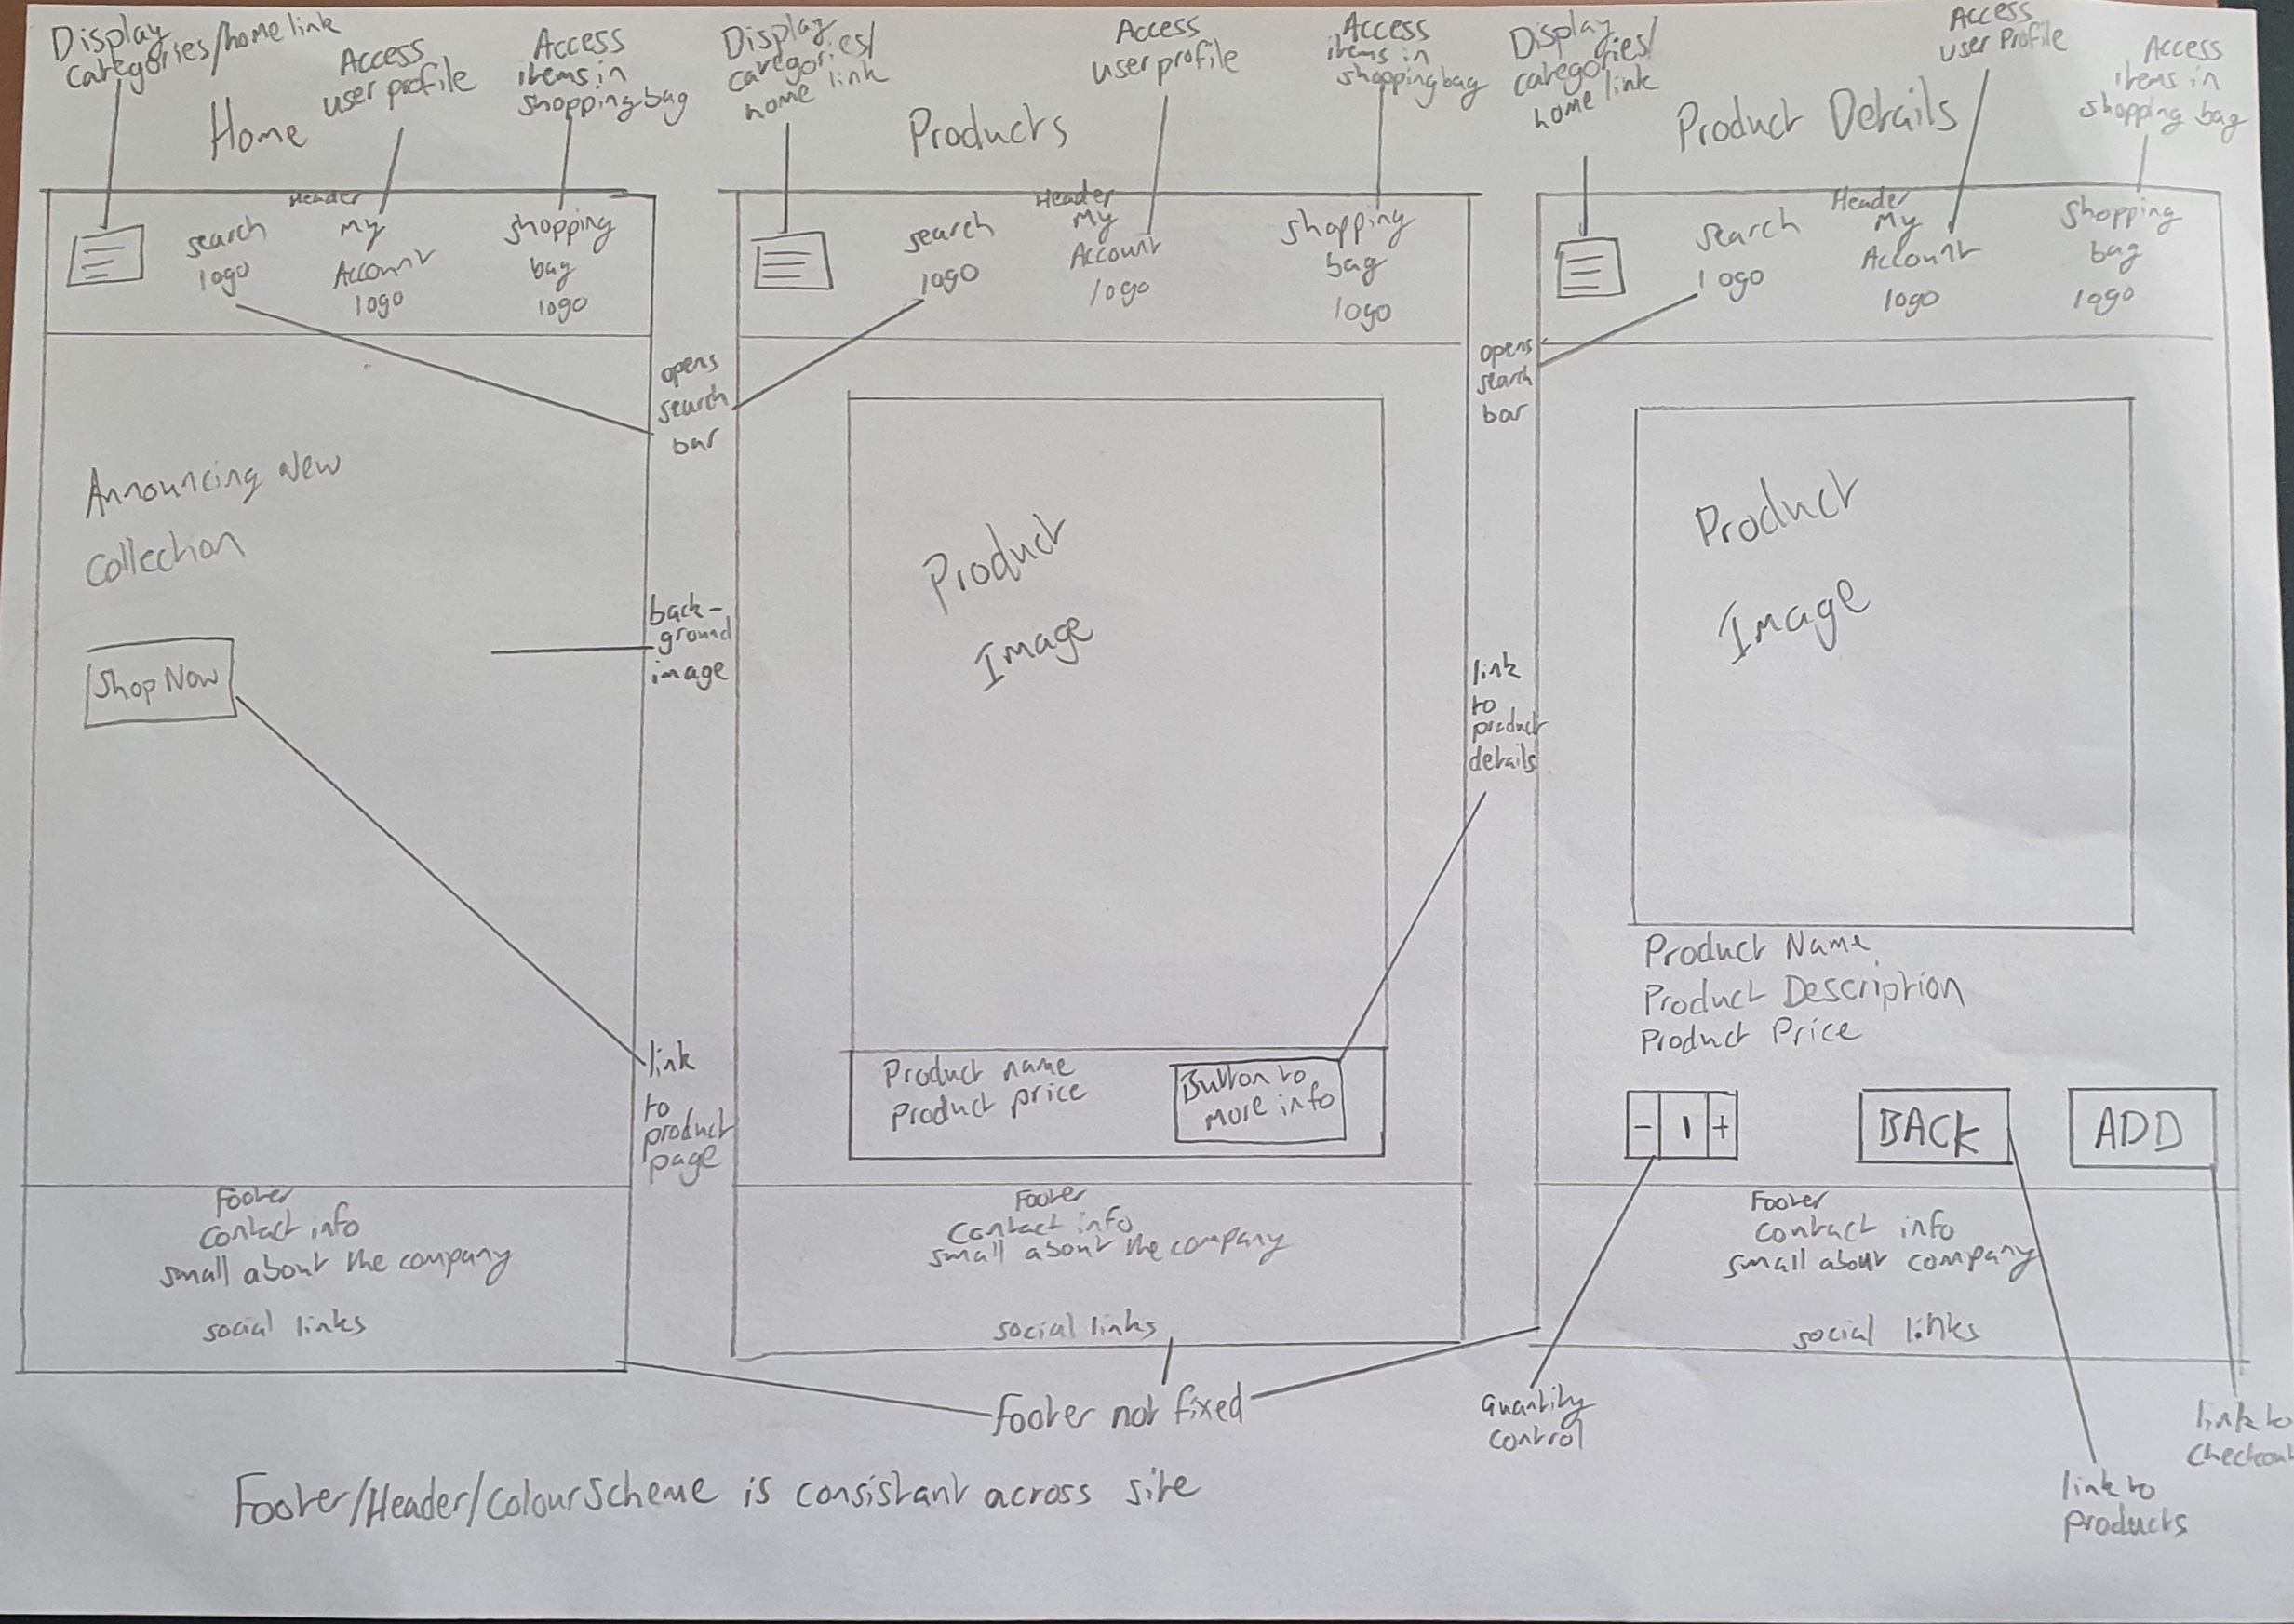 Display
categories/home link
Access
user profile
Access
items in
shopping bag
Home
Header
search
logo
My
Account
logo
shopping
bag
logo
opens
search
bar
Announcing New
Collection
Shop Now
back-
ground
image
link
to
product
page
Footer
contact info
small about the company
social links
Display
categories/
home link
Access
user profile
Access
items in
shopping bag
Products
Header
search
logo
My
Account
logo
shopping
bag
logo
opens
search
bar
Product
Image
link
to
product
details
Product name
Product price
Button to
more info
Footer
Contact info
small about the company
social links
Display
categories/
home link
Access
user Profile
Access
items in
shopping bag
Product Details
Header
search
logo
My
Account
logo
shopping
bag
logo
Product
Image
Product Name
Product Description
Product Price
- 1 +
BACK
ADD
Footer
contact info
small about company
social links
footer not fixed
Quantity
control
link to
products
link to
checkout
Footer/Header/colourScheme is consistant across site